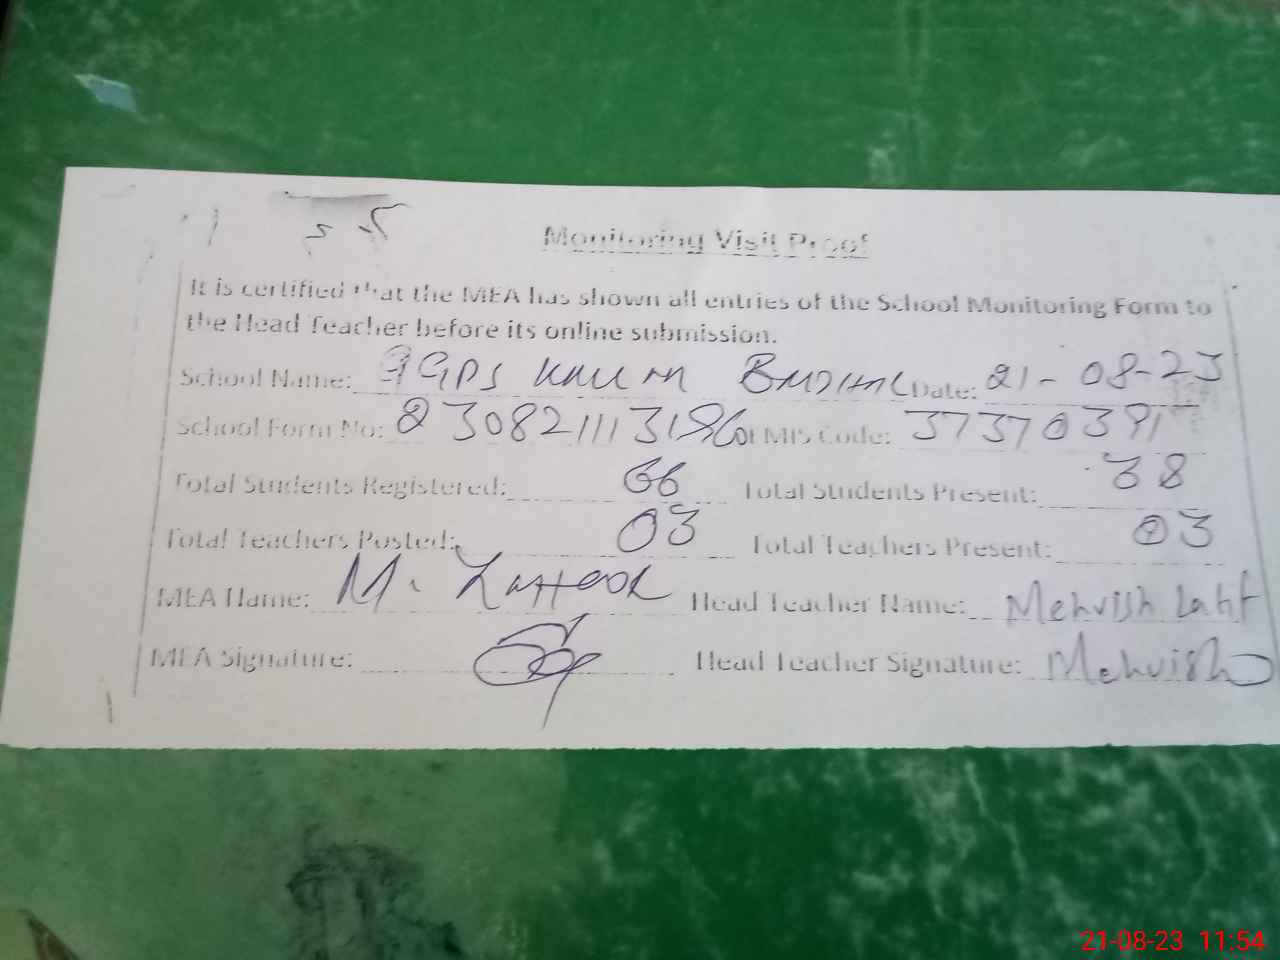 Monitoring Visit Proof
It is certified that the MEA has shown all entries of the School Monitoring Form to
the Head Teacher before its online submission.
School Name: GGPS Date: 21-08-23
School Form No: EMIS Code: 37370391
Total Students Registered: 66 Total Students Present: 38
Total Teachers Posted: 03 Total Teachers Present: 03
MEA Name: M. Head Teacher Name: Mehvish Latif
MEA Signature: Head Teacher Signature: Mehvish
21-08-23 11:54